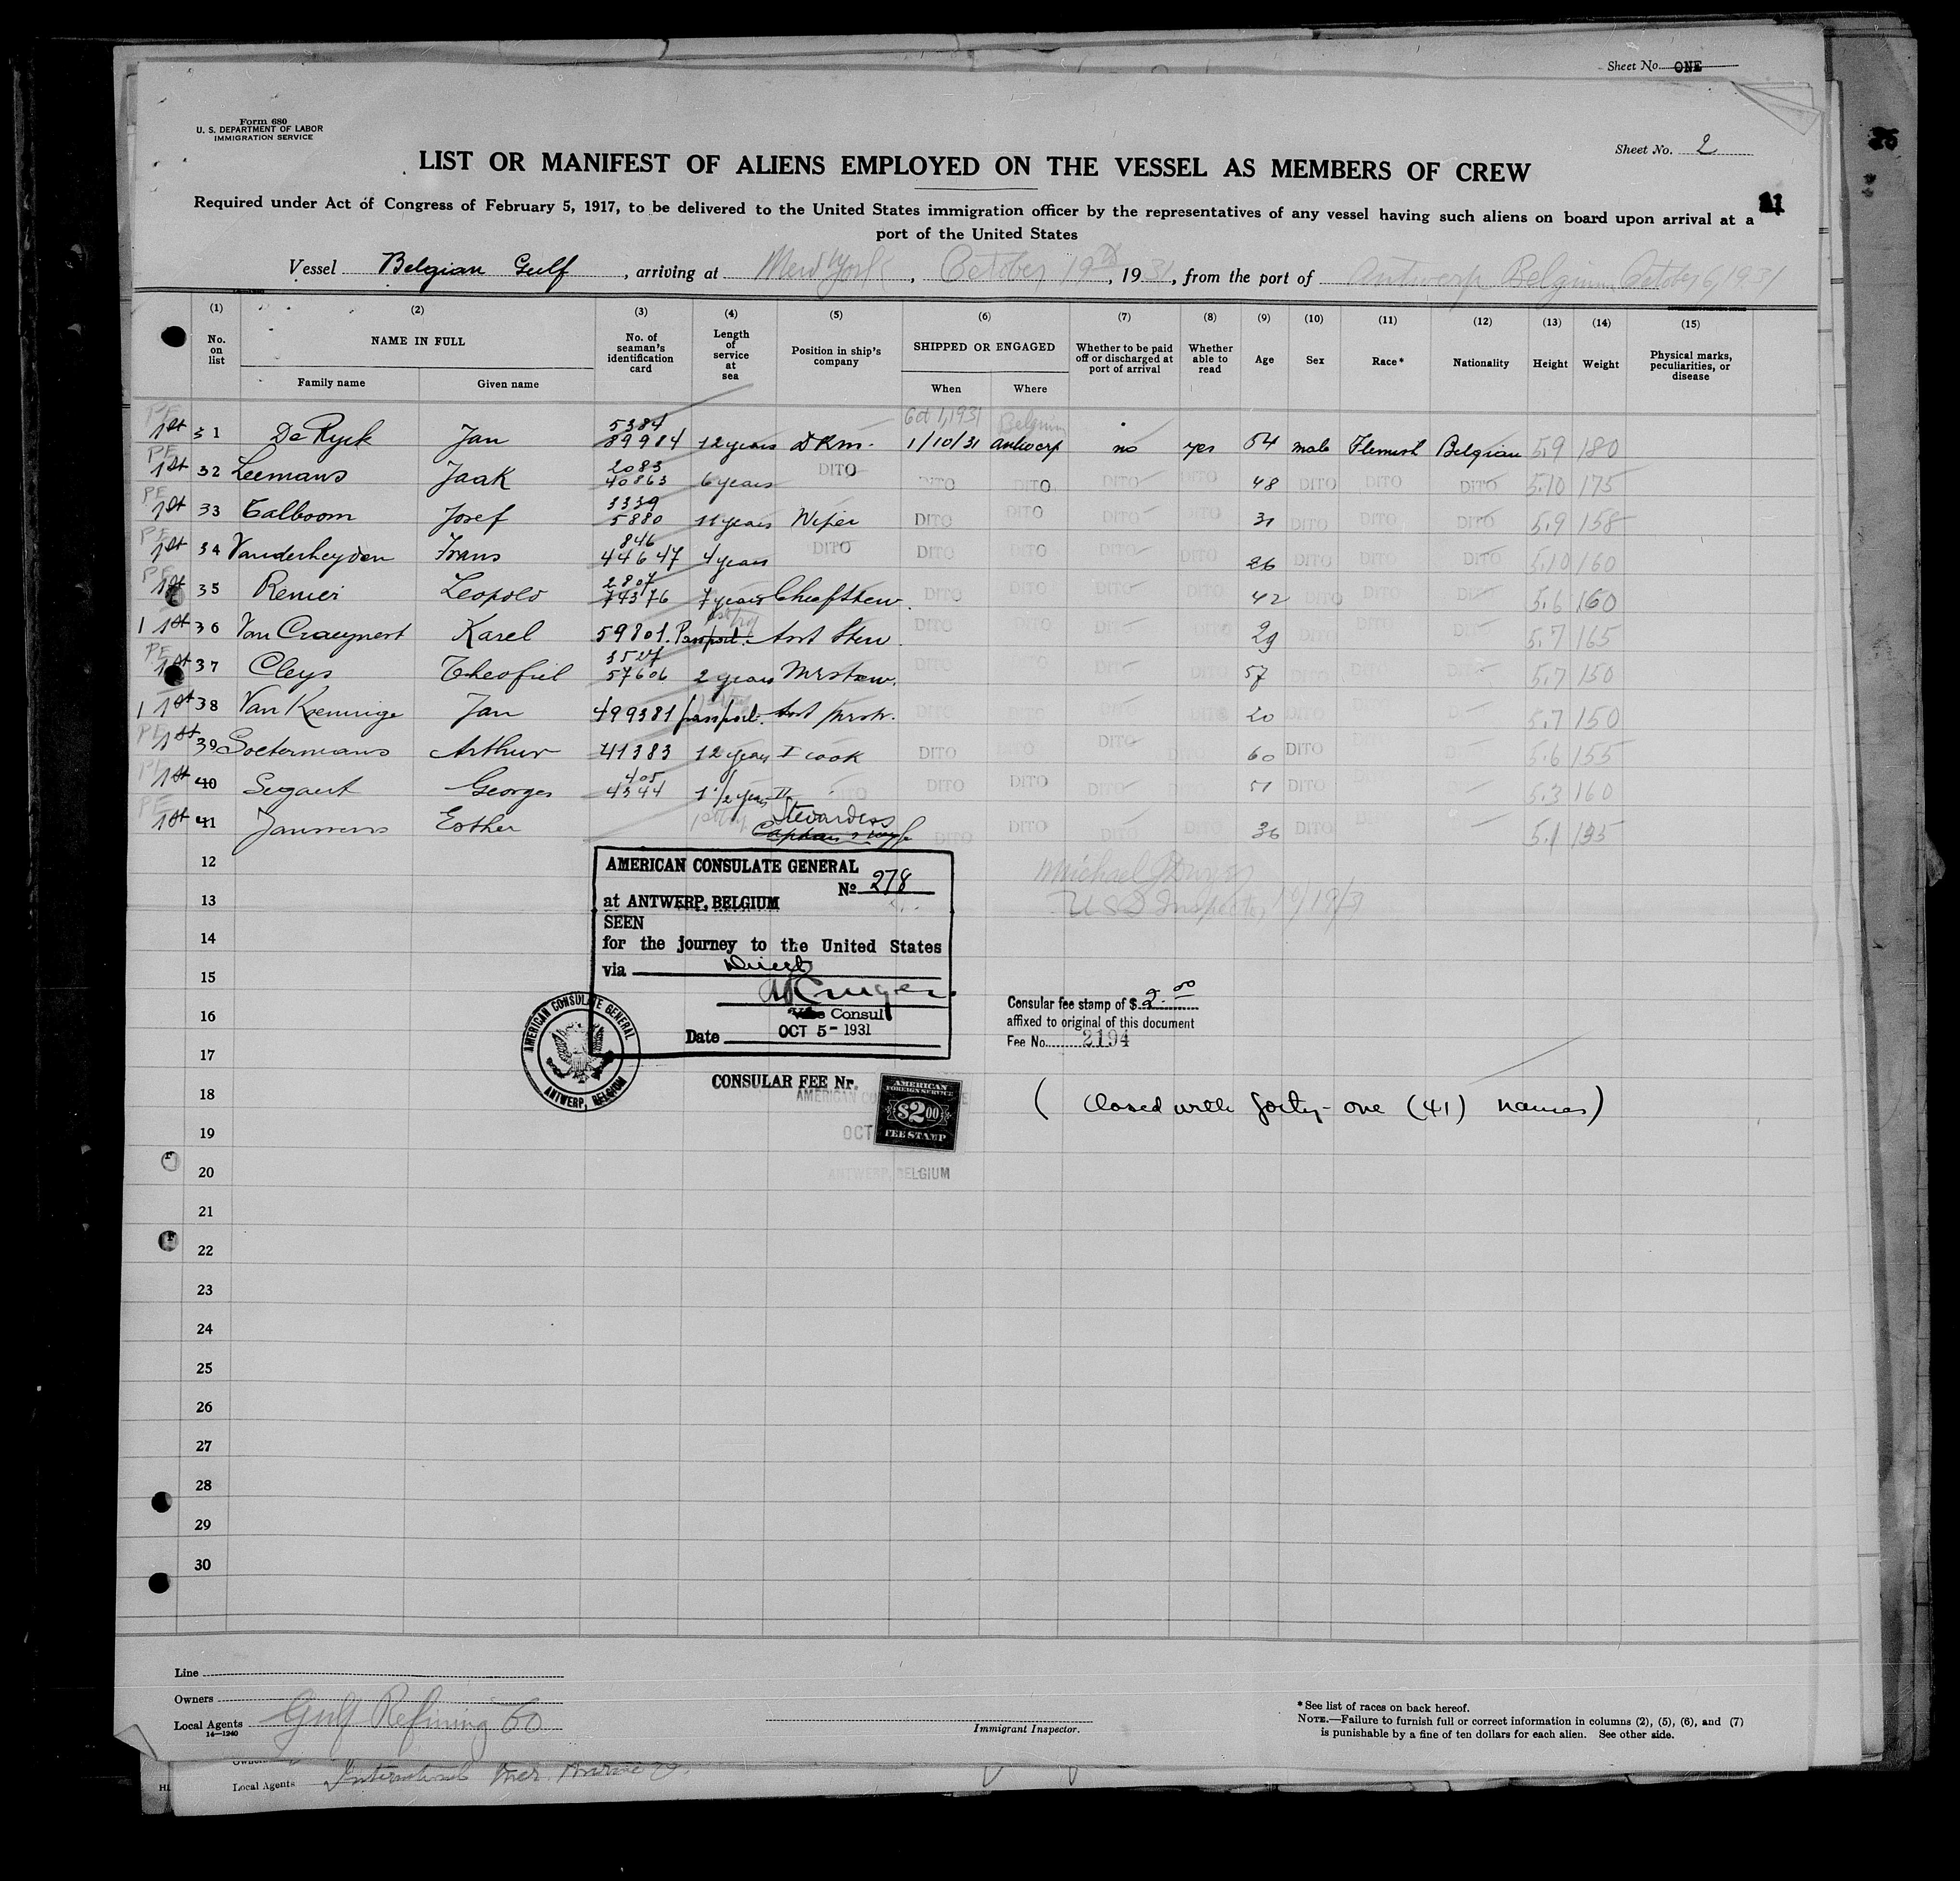 Sheet No. ONE
Form 680
U. S. DEPARTMENT OF LABOR
IMMIGRATION SERVICE
Sheet No. 2
LIST OR MANIFEST OF ALIENS EMPLOYED ON THE VESSEL AS MEMBERS OF CREW
Required under Act of Congress of February 5, 1917, to be delivered to the United States immigration officer by the representatives of any vessel having such aliens on board upon arrival at a
port of the United States
Vessel Belgian Gulf, arriving at New York, October 19th, 1931, from the port of Antwerp Belgium October 6, 1931
(1) (2) (3) (4) (5) (6) (7) (8) (9) (10) (11) (12) (13) (14) (15)
No. on list NAME IN FULL No. of seaman's identification card Length of service at sea Position in ship's company SHIPPED OR ENGAGED Whether to be paid off or discharged at port of arrival Whether able to read Age Sex Race* Nationality Height Weight Physical marks, peculiarities, or disease
Family name Given name When Where
PE 5384 Oct 1, 1931 Belgium
1st 31 De Ryck Jan 89984 12 years DKm. 1/10/31 Antwerp no yes 54 male Flemish Belgian 5.9 180
PE 2083
1st 32 Leemans Jaak 40863 6 years DITO DITO DITO DITO DITO 48 DITO DITO DITO 5.10 175
PE 3339
1st 33 Talboom Josef 5880 11 years Wiper DITO DITO DITO DITO 31 DITO DITO DITO 5.9 158
PE 846
1st 34 Vanderheyden Frans 44647 4 years DITO DITO DITO DITO DITO 26 DITO DITO DITO 5.10 160
PE 2807
1st 35 Renier Leopold 74376 7 years Chief Stew. DITO DITO DITO DITO 42 DITO DITO DITO 5.6 160
1 1st 36 Karel 59801. Passport. Asst Stew. DITO DITO DITO DITO 29 5.7 165
PE 3527
1st 37 Cleys Theofiel 57606 2 years Mrstew. DITO DITO DITO 57 5.7 150
1 1st 38 Jan 499381 passport. Asst DITO DITO 20 DITO 5.7 150
PE 1st 39 Soetermans Arthur 41383 12 years I cook DITO DITO DITO 60 DITO 5.6 155
PE 405
1st 40 Georges 4344 1 1/2 years II DITO DITO DITO DITO 51 DITO 5.3 160
PE 1st trip Stewardess
1st 41 Janssens Esther Captain's wife DITO DITO DITO 36 DITO 5.1 135
12
AMERICAN CONSULATE GENERAL
No 278
at ANTWERP, BELGIUM
SEEN
for the journey to the United States
via Direct
Vice Consul
Date OCT 5- 1931
AMERICAN CONSULATE GENERAL
ANTWERP, BELGIUM
Michael
U S Inspector, 10/19/31
13
14
15
16
Consular fee stamp of $ 2.00
affixed to original of this document
Fee No. 2194
17
CONSULAR FEE Nr.
AMERICAN
FOREIGN SERVICE
$2.00
FEE STAMP
OCT
ANTWERP, BELGIUM
18
(Closed with forty-one (41) names)
19
20
21
22
23
24
25
26
27
28
29
30
Line
Owners
Local Agents Gulf Refining Co
14—1240
Immigrant Inspector.
* See list of races on back hereof.
NOTE.—Failure to furnish full or correct information in columns (2), (5), (6), and (7)
is punishable by a fine of ten dollars for each alien. See other side.
Owners
Local Agents